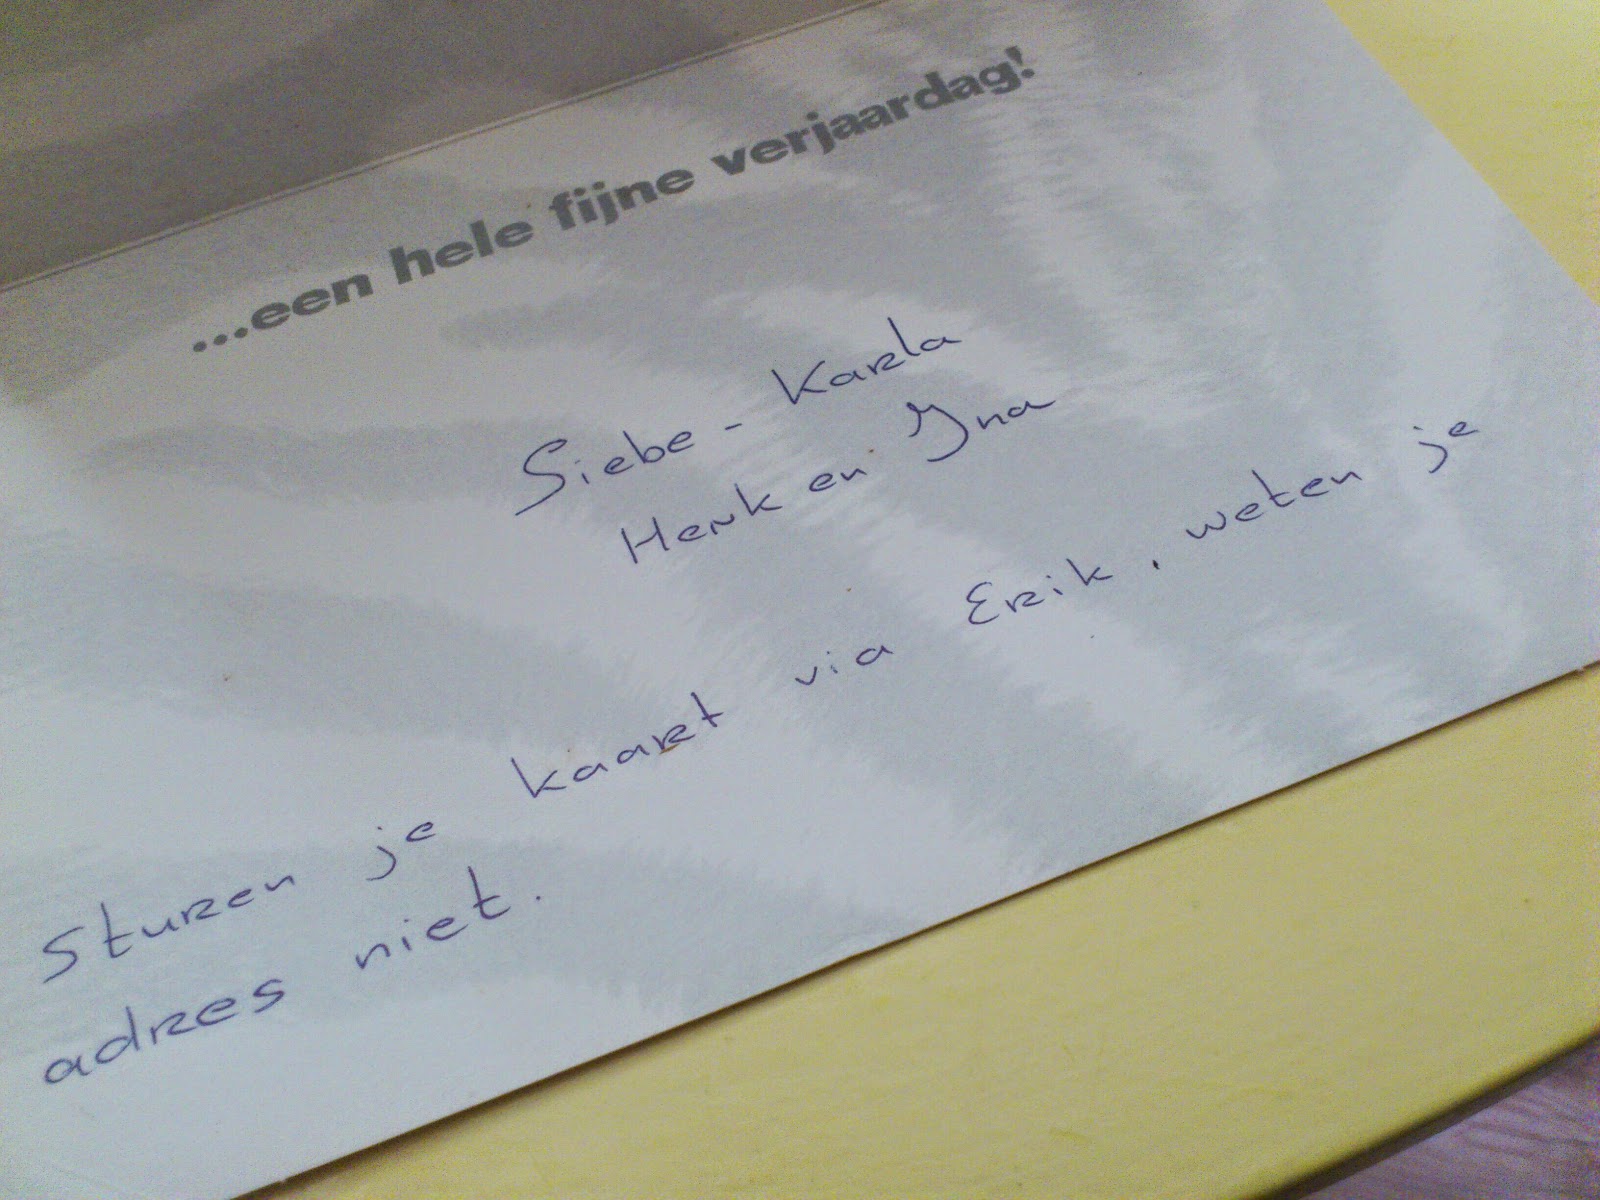 ...een hele fijne verjaardag!
Siebe - Karla
Henk en Ina
Sturen je kaart via Erik, weten je
adres niet.